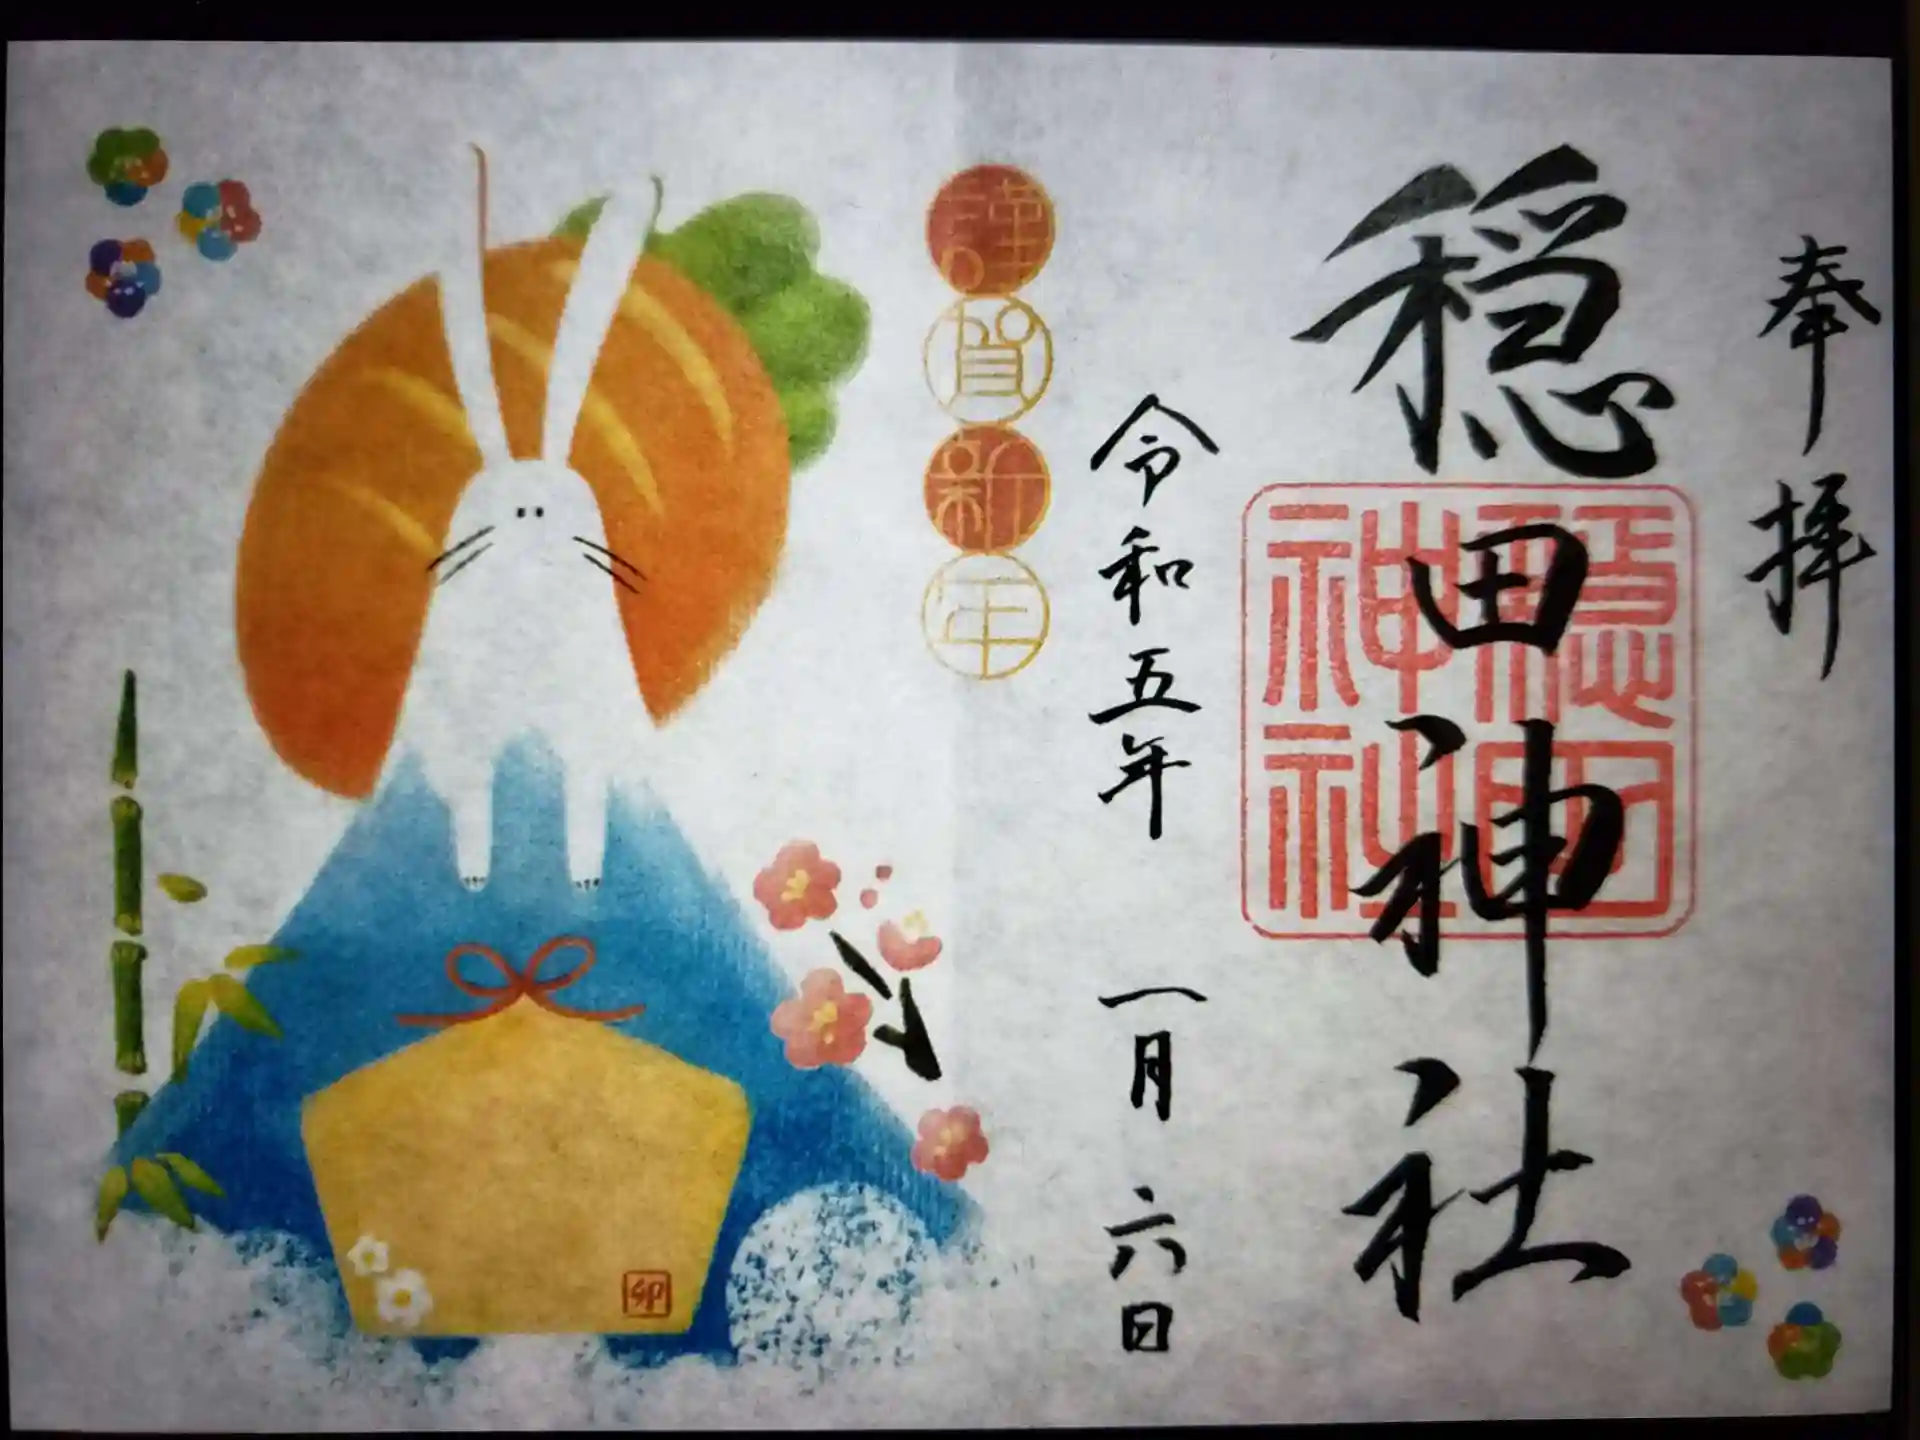 奉拝
穏田神社
穏田
神社
令和五年 一月 六日
謹賀新年
卯